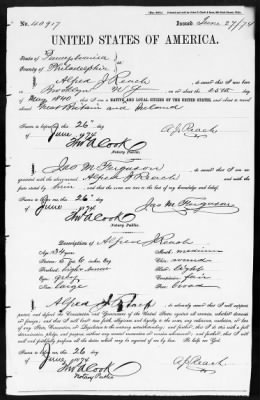 No. 40917 Issued June 27/74
UNITED STATES OF AMERICA.
State of Pennsylvania
County of Philadelphia
I, Alfred J Reach, do swear that I was born
in Brooklyn N Y on the 25th day of
May 1840, that I am a NATIVE AND LOYAL CITIZEN OF THE UNITED STATES, and about to travel
Great Britain and Ireland
Sworn to before me this 26th day
of June 1874 A J Reach
Thos D Cook
Notary Public.
I, Jas M Ferguson do swear that I am acquainted
with the above named Alfred J Reach and with the facts
stated by him and that the same are true to the best of my knowledge and belief.
Sworn to before me this 26th day
of June 1874 Jas M Ferguson
Thos D Cook
Notary Public.
Description of Alfred J Reach
Age, 34 years Mouth, medium
Stature, 5 feet 6 inches, Eng. Chin, round
Forehead, Hair, light
Eyes, grey Complexion, fair
Nose, large Face, broad
I, Alfred J Reach do solemnly swear that I will support,
protect, and defend the Constitution and Government of the United States against all enemies, whether domestic
or foreign; and that I will bear true faith, allegiance, and loyalty to the same, any ordinance, resolution, or law
of any State, Convention, or Legislature to the contrary notwithstanding; and further, that I do this with a full
determination, pledge, and purpose, without any mental reservation or evasion whatsoever; and further, that I will
well and faithfully perform all the duties which may be required of me by law. So help me God.
Sworn to before me this 26th day
of June, 1874 A J Reach
Thos D Cook
Notary Public